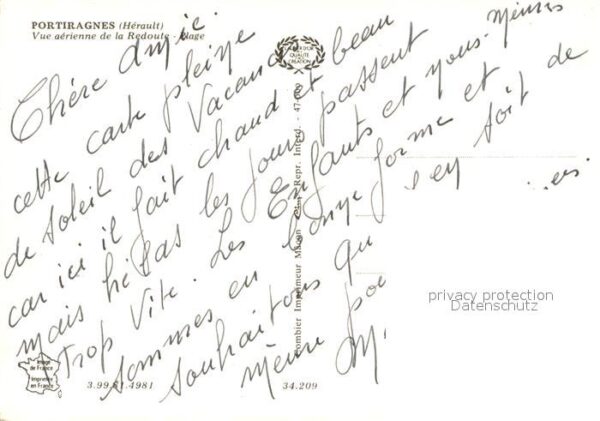 PORTIRAGNES (Hérault)
Vue aérienne de la Redoute - Plage
Chère Amie.
cette carte pleine
de Soleil des Vacances
car ici il fait chaud et beau
mais hélas les jours passent
Trop Vite. Les Enfants et nous-mêmes
sommes en bonne forme et
souhaitons qu en soit de
même po
Combier Imprimeur Mâcon Repr. Interd. - 47-
QUALITÉ
CRÉATION
Image de France
Imprimée en France
3.99.81.4981
34.209
privacy protection
Datenschutz